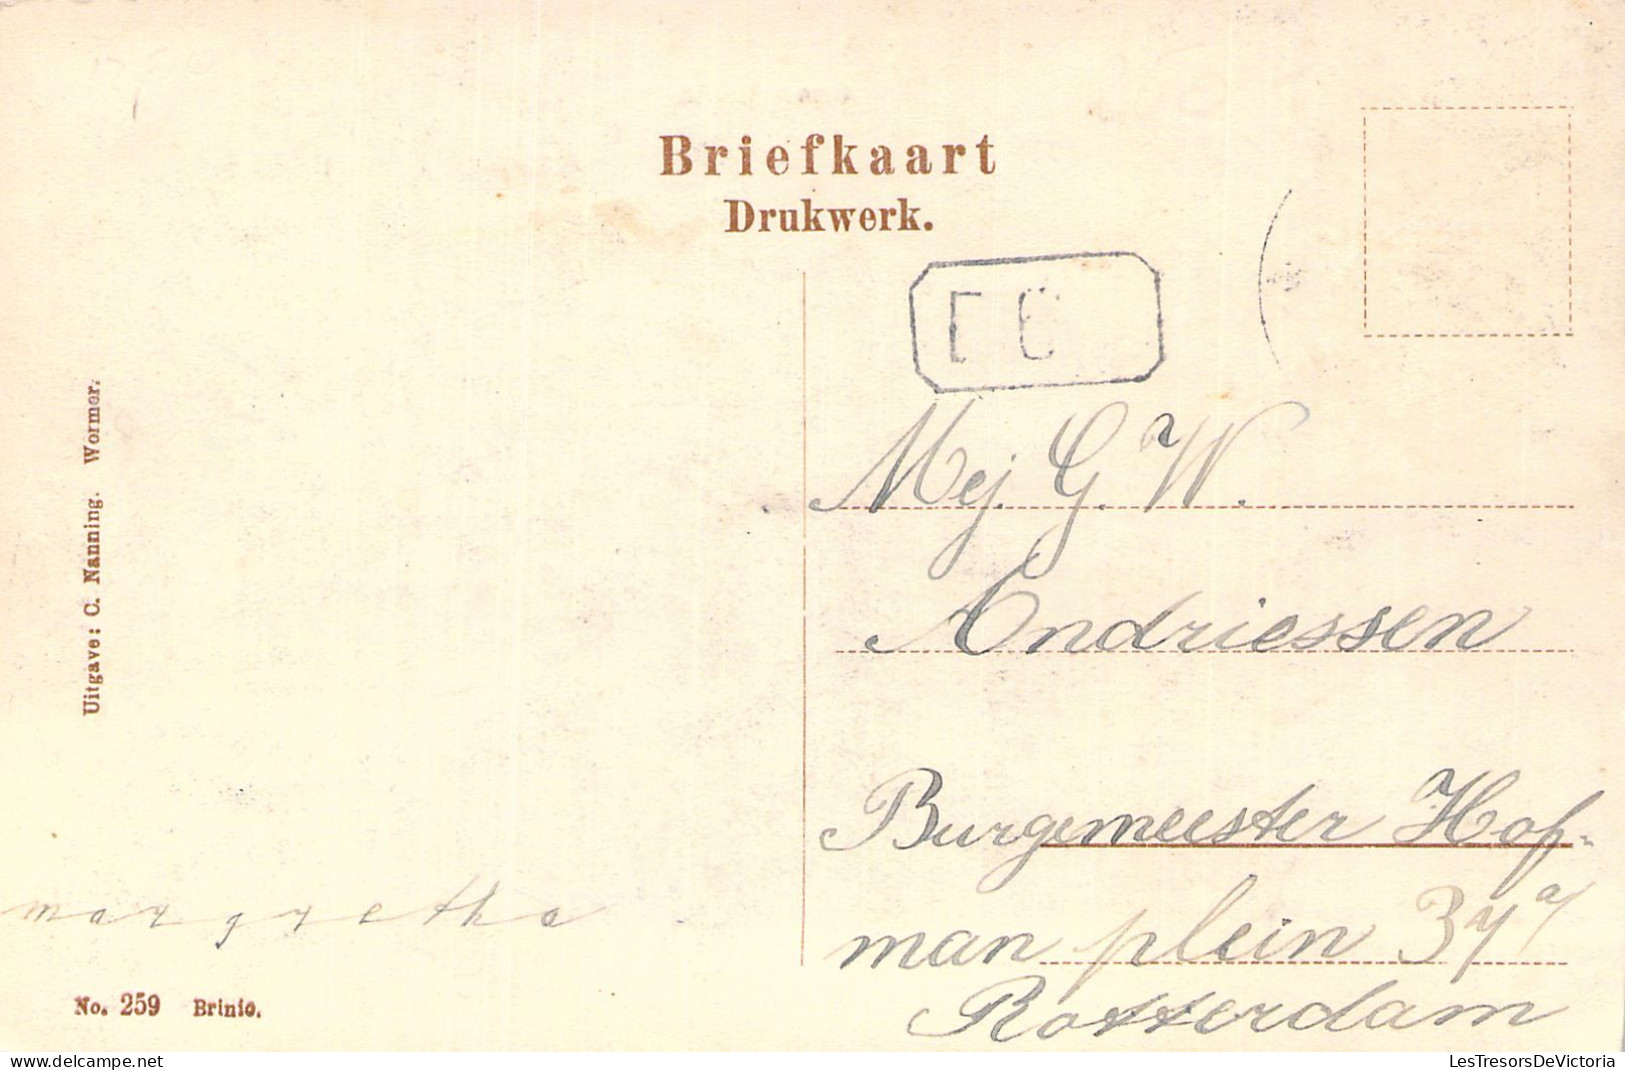 Briefkaart
Drukwerk.
Uitgave: C. Nanning. Wormer.
Mej. G. W.
Andriessen
Burgemeester Hof-
man plein 37a/
Rotterdam
margretha
No. 259 Brinio.
LesTresorsDeVictoria